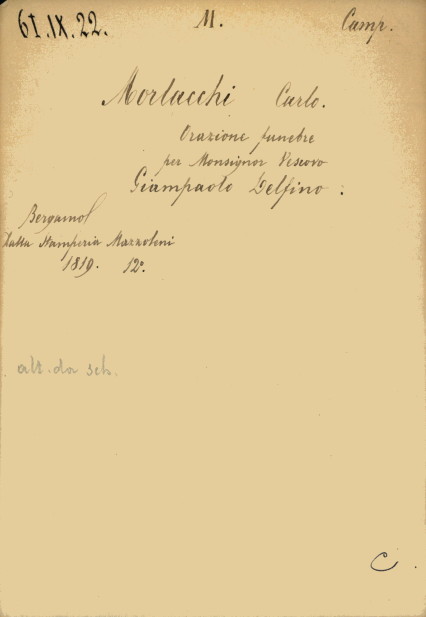 61.IX.22. M. Camp.
Morlacchi Carlo.
Orazione funebre
per Monsignor Vescovo
Giampaolo Delfino.
Bergamo
Dalla Stamperia Mazzoleni
1819. 12°.
alt. da sch.
C.